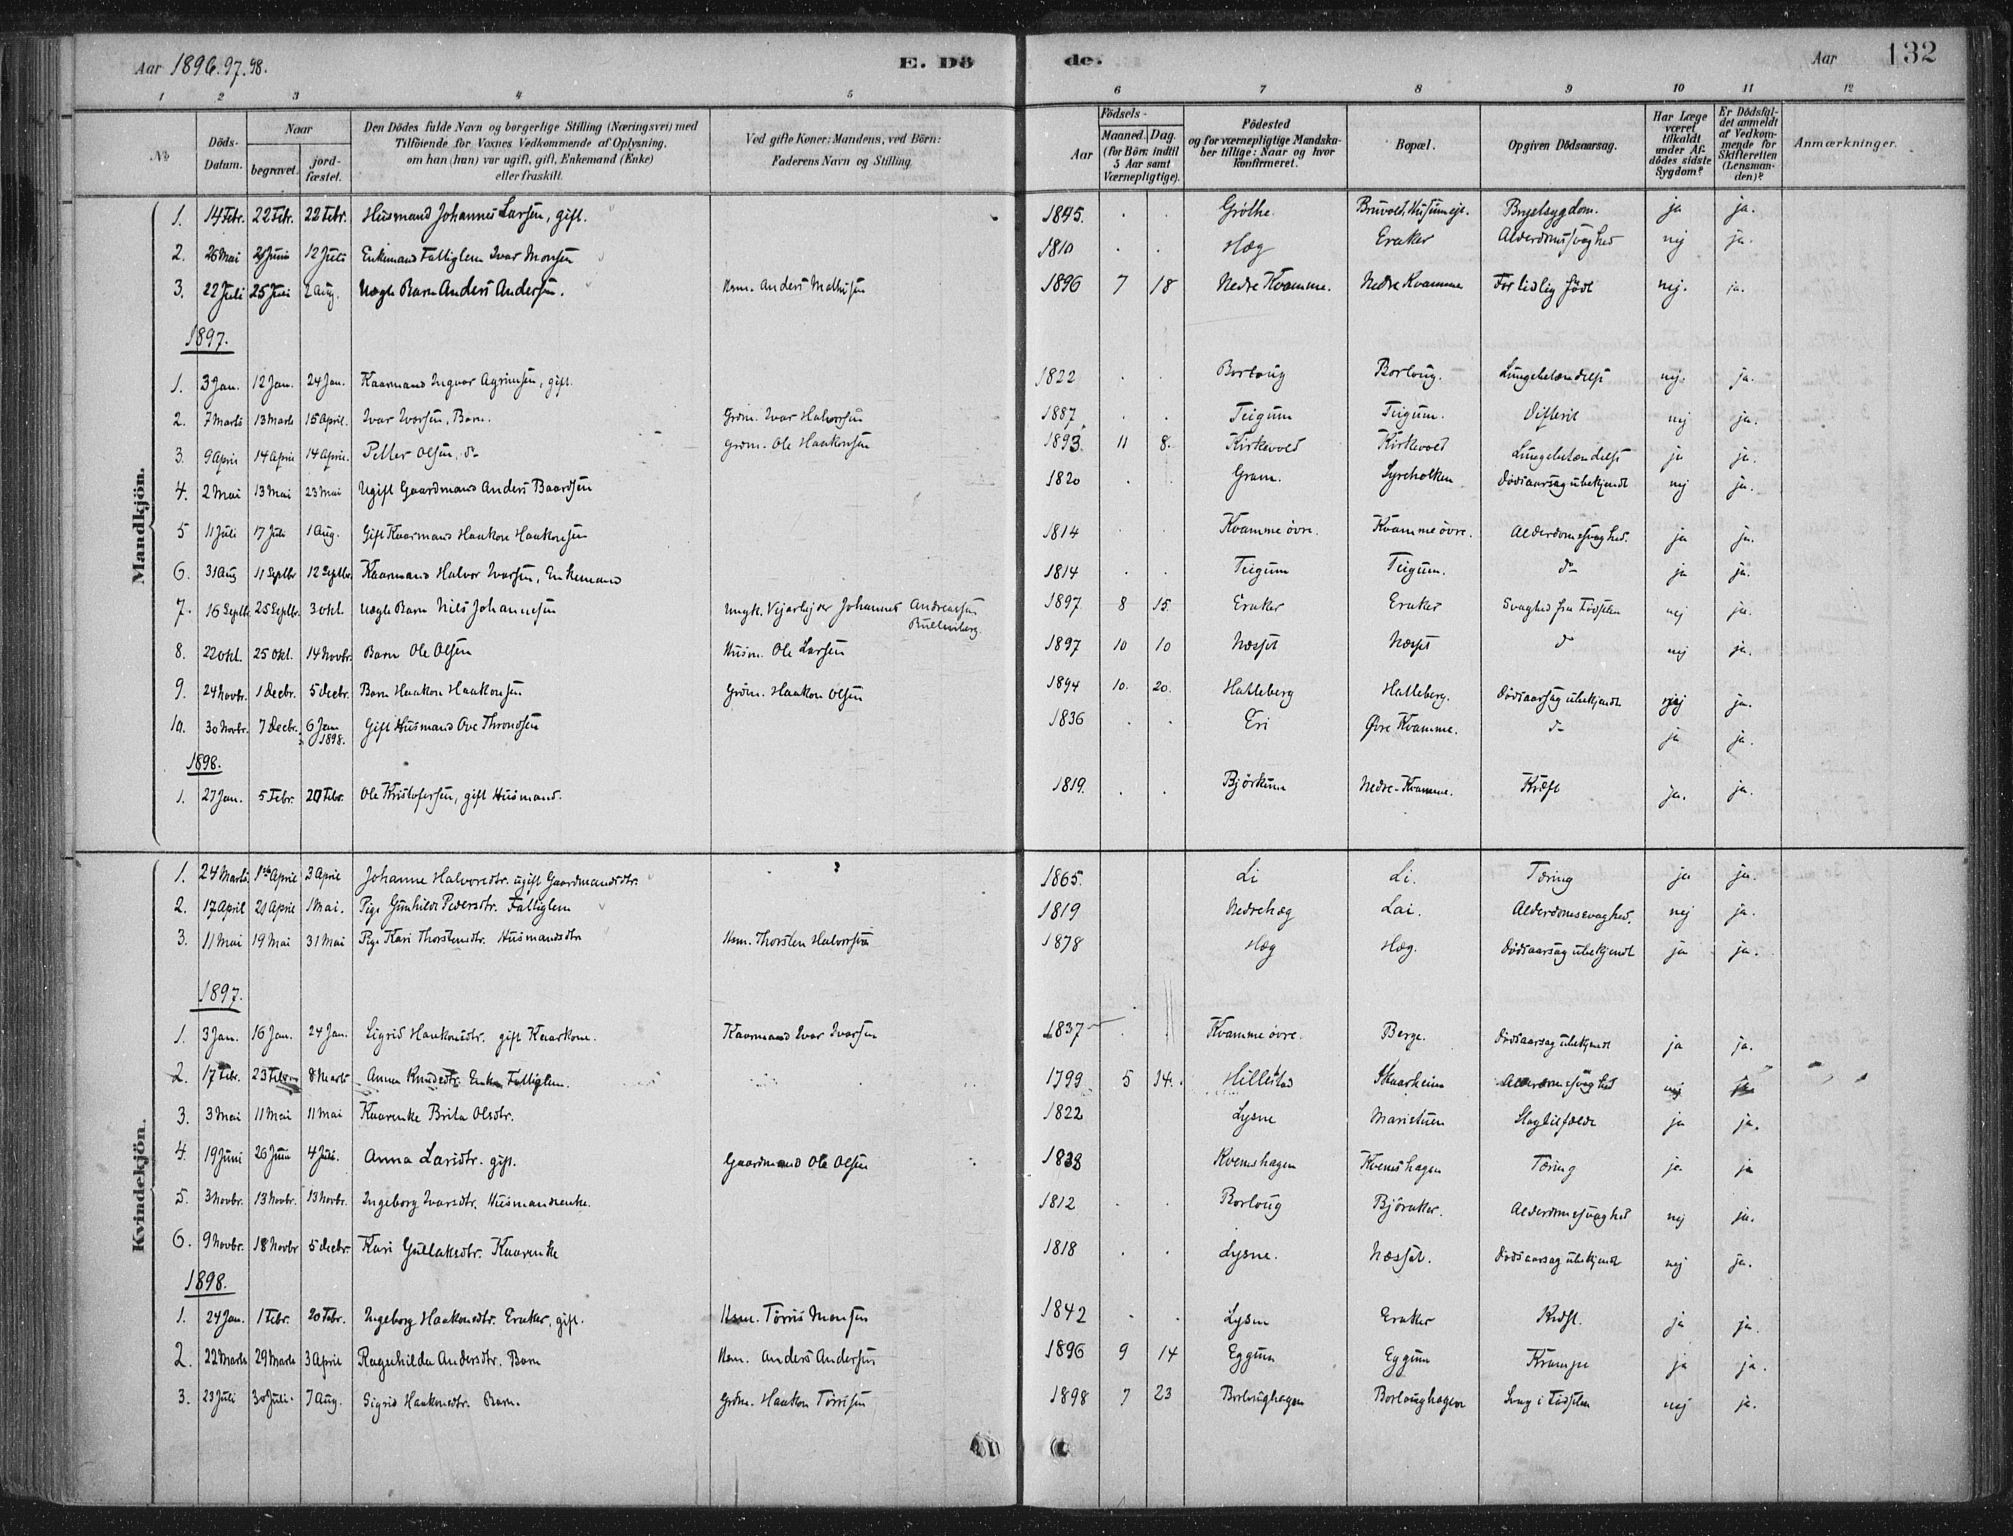 Aar 1896.97.98.
E. Dö
de.
Aar 132
1 2 3 4 5 6 7 8 9 10 11 12
No
Döds-Datum.
Naar
begravet. jordfæstet.
Den Dödes fulde Navn og borgerlige Stilling (Næringsvei) med Tilföiende for Voxnes Vedkommende af Oplysning, om han (hun) var ugift, gift, Enkemand (Enke) eller fraskilt.
Ved gifte Koner: Mandens, ved Börn: Faderens Navn og Stilling.
Födsels-
Aar Maaned. Dag. (for Börn indtil 5 Aar samt Værnepligtige).
Födested og for værnepligtige Mandskaber tillige: Naar og hvor konfirmeret.
Bopæl.
Opgiven Dödsaarsag.
Har Læge været tilkaldt under Afdødes sidste Sygdom?
Er Dödsfaldet anmeldt af Vedkommende for Skifteretten (Lensmanden)?
Anmærkninger.
Mandkjön.
1. 14 Febr. 22 Febr. 22 Febr. Husmand Johannes Larsen, gift. 1845 Grøthe Bruvold, Husumeje. Brystsygdom. ja ja.
2. 26 Mai 2 Juni 12 Juli Enkemand Fattiglem Ivar Monsen 1810 Hæg Eraker Alderdomssvaghed nej ja.
3. 22 Juli 25 Juli 2 Aug. Uægte Barn Anders Andersen. Usm. Anders Mathisen 1896 7 18 Nedre Kvamme. Nedre Kvamme For tidlig født nej. ja.
1897.
1. 3 Jan. 12 Jan. 24 Jan. Kaarmand Ingvar Agrimsen, gift. 1822 Borloug Borloug. Lungebetændelse nej. ja.
2. 7 Marts 13 Marts 15 April. Ivar Ivarsen, Barn. Grdm. Ivar Halvorsen 1887 Teigum Teigum. Difterit nej ja.
3. 9 April 14 April 14 April. Petter Olsen, do Grdm. Ole Haakonsen 1893. 11 8. Kirkevold Kirkevold Lungebetændelse ja ja.
4. 2 Mai 13 Mai 23 Mai Ugift Gaardmand Anders Baardsen 1820 Gram. Syreholken Dødsaarsag ubekjendt nej ja.
5 11 Juli 17 Juli 1 Aug. Gift Kaarmand Haakon Haakonsen 1814 Kvamme øvre. Kvamme øvre. Alderdomssvaghed. ja ja.
6. 31 Aug 11 Septbr 12 Septbr. Kaarmand Halvor Ivarsen, Enkemand 1814 Teigum Teigum. do ja ja.
7. 16 Septbr. 25 Septbr. 3 Okt. Uægte Barn Nils Johannesen Ungk. Vejarbejder Johannes Andreassen 1897. 8 15. Eraker Eraker Svaghed fra Fødselen nej ja.
8. 22 Okt. 25 Okt. 14 Novbr. Barn Ole Olsen Husm. Ole Larsen 1897 10 10 Næsset Næsset do nej ja.
9. 24 Novbr. 1 Decbr. 5 Decbr. Barn Haakon Haakonsen Grdm. Haakon Olsen 1894 10. 20. Hatleberg Hatleberg. Dødsaarsag ubekjendt nej ja.
10. 30 Novbr. 7 Decbr. 6 Jan 1898. Gift Husmand Ove Throndsen 1836 Eri Øvre Kvamme. do ja ja.
1898.
1. 27 Jan. 5 Febr. 20 Febr. Ole Kristofersen, gift Husmand. 1819. Bjørkum Nedre-Kvamme. Kræft ja. ja.
Kvindekjön.
1. 24 Marts 1ste April 3 April Johanne Halvorsdtr. ugift Gaardmandsdtr. 1865. Li Li. Tæring ja ja.
2. 17 April 21 April 1 Mai. Pige Gunhilde Pedersdtr. Fattiglem 1819 Nedrehæg Lai. Alderdomssvaghed. nej ja.
3. 11 Mai 19 Mai 31 Mai Pige Kari Thorstensdtr. Husmandsdtr Usm. Thorsten Halvorsen 1878 Hæg Hæg. Dødsaarsag ubekjendt ja ja.
1897.
1. 3 Jan. 16 Jan. 24 Jan. Sigrid Haakonsdtr. gift Kaarkone. Kaarmand Ivar Ivarsen 1837 Kvamme øvre. Berge. Dødsaarsag ubekjendt ja ja.
2. 17 Febr. 23 Febr. 8 Marts Anna Knudsdtr. Enke Fattiglem. 1799 5 14. Hillestad Skaarheim Alderdomssvaghed nej ja
3. 3 Mai 11 Mai 11 Mai Kaarenke Brita Olsdtr. 1822 Lysne Maristuen Slagtilfælde ja ja.
4. 19 Juni 26 Juni 4 Juli. Anna Larsdtr. gift. Gaardmand Ole Olsen 1838 Kvemshagen Kvemshagen Tæring ja ja
5. 3 Novbr. 13 Novbr. 13 Novbr. Ingeborg Ivarsdtr. Husmandsenke. 1812 Borloug Bjøraker. Alderdomssvaghed nej ja.
6. 9 Novbr. 18 Novbr 5 Decbr. Kari Gullaksdtr. Kaarenke 1818 Lysne. Næsset. Dødsaarsag ubekjendt nej ja.
1898.
1. 24 Jan. 1 Febr. 20 Febr. Ingeborg Haakonsdtr. Eraker, gift. Usm. Tørris Monsen 1842 Lysne Eraker Kræft. ja ja.
2. 22 Marts 29 Marts 3 April Ragnhilda Andersdtr. Barn Usm. Anders Andersen 1896 9 14 Eggum Eggum Krampe ja ja.
3. 23 Juli 30 Juli. 7 Aug. Sigrid Haakonsdtr. Barn. Grdm. Haakon Tørrisen 1898 7 23 Borloughagen Borloughagen Svag i Fødselen nej ja.